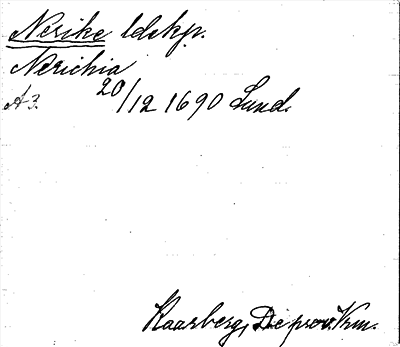 Nerike ldskp.
Nerichia
A3. 20/12 1690 Lund.
Kaarberg, De prov. Krm.